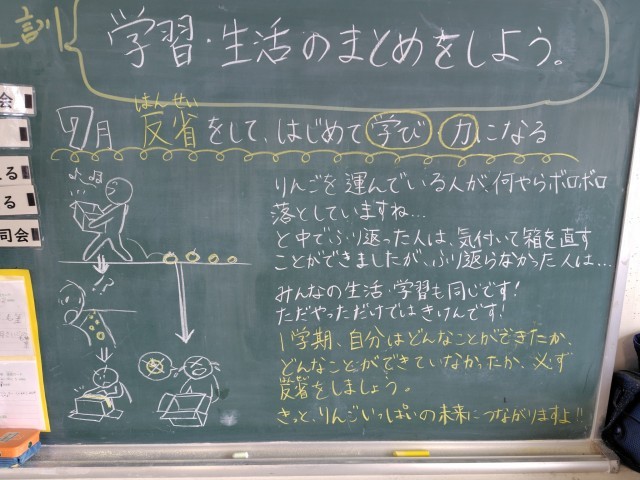 訓
学習・生活のまとめをしよう。
会
る
る
司会
はんせい
7月 反省をして、はじめて学び力になる
りんごを運んでいる人が、何やらボロボロ
落としていますね…
と中でふり返った人は、気付いて箱を直す
ことができましたが、ふり返らなかった人は…
みんなの生活・学習も同じです!
ただやっただけではきけんです!
1学期、自分はどんなことができたか、
どんなことができていなかったか、必ず
反省をしましょう。
きっと、りんごいっぱいの未来につながりますよ!!
!?